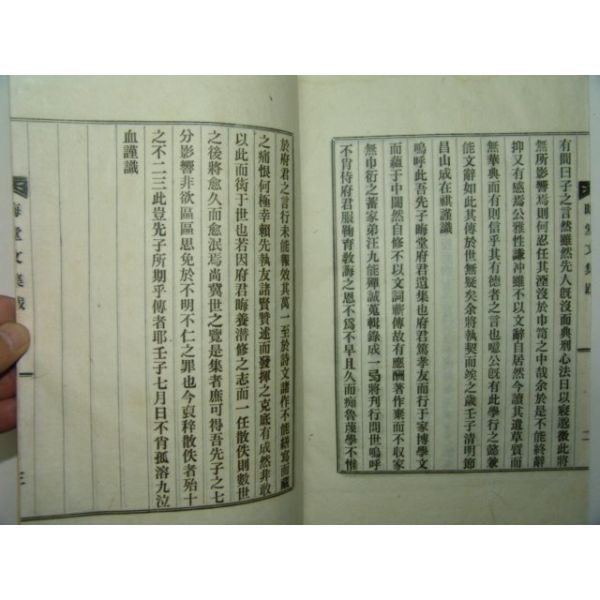 有間曰子之言然雖然先人旣沒面典刑心法日以寢邈微此將
無所影響焉則何忍任其湮沒於巾笥之中哉余於是不能終辭
抑又有感焉公雅性謙冲雖不以文辭自居然今讀其遺草質而
無華典而有則信乎其有德者之言也噫公旣有此學行之懿兼
能文辭如此其傳於世無疑矣余將執契而竢之歲壬子淸明節
昌山成在祺謹識
嗚呼此吾先子晦堂府君遺集也府君篤孝友而行于家博學文
而蘊于中闇然自修不以文詞蘄傳故有應酬著作棄而不取家
無巾衍之蓄家弟汪九能殫誠蒐輯錄成一弓將刊行問世嗚呼
不肖侍府君服鞠育敎誨之恩不爲不早且久而痴魯蔑學不惟
二
於府君之言行未能報效其萬一至於詩文諸作不能繕寫而藏
之痛恨何極幸賴先執友諸賢贊述而發揮之克底有成然非敢
以此而衒于世也若因府君晦養潛修之志而一任散佚則數世
之後將愈久而愈泯焉尚冀世之覽是集者庶可得吾先子之七
分影響非欲區區思免於不明不仁之罪也今裒稡散佚者殆十
之不二三此豈先子所期乎傳者耶壬子七月日不肖孤溶九泣
血謹識
晦堂文集跋
三